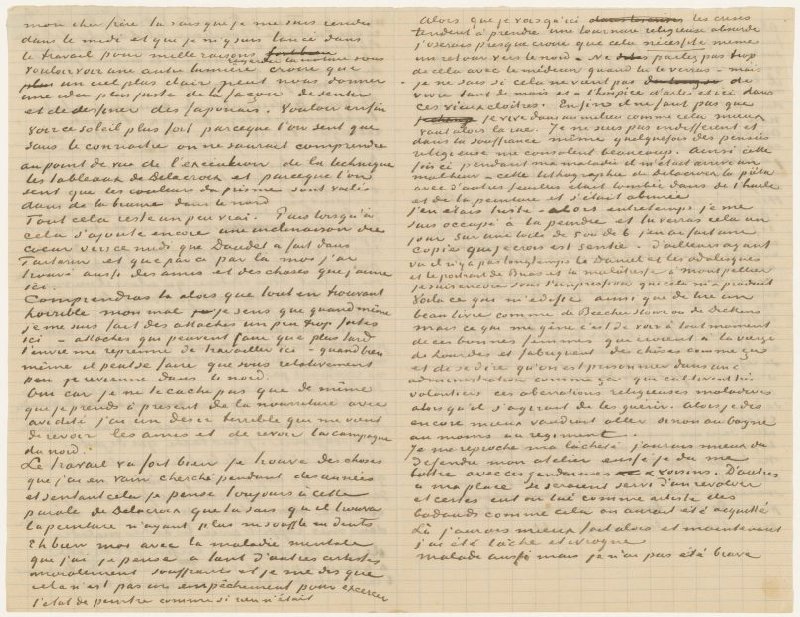 mon cher frère tu sais que je me suis rendu
dans le midi et que je m'y suis lancé dans
le travail pour mille raisons
vouloir voir une autre lumière, croire que regarder la nature sous
un ciel plus clair peut nous donner
une idée plus juste de la façon de sentir
et de dessiner des Japonais. Vouloir enfin
voir ce soleil plus fort parceque l'on sent que
sans le connaitre on ne saurait comprendre
au point de vue de l'exécution, de la technique
les tableaux de Delacroix et parceque l'on
sent que les couleurs du prisme sont voilés
dans de la brume dans le nord
Tout cela reste un peu vrai. Puis lorsqu'à
cela s'ajoute encore une inclinaison du
coeur vers ce midi que Daudet a fait dans
Tartarin et que par ci par là moi j'ai
trouvé aussi des amis et des choses que j'aime
ici.
Comprendras tu alors que tout en trouvant
horrible mon mal je sens que quand même
je me suis fait des attaches un peu trop fortes
ici – attaches qui peuvent faire que plus tard
l'envie me reprenne de travailler ici – quand bien
même il peut se faire que sous relativement
peu je revienne dans le nord.
Oui car je ne te cache pas que de même
que je prends à présent de la nourriture avec
avidité j'ai un désir terrible que me vient
de revoir les amis et de revoir la campagne
du nord.
Le travail va fort bien je trouve des choses
que j'ai en vain cherché pendant des années
et sentant cela je pense toujours à cette
parole de Delacroix que tu sais qu'il trouva
la peinture n'ayant plus ni souffle ni dents
Eh bien moi avec la maladie mentale
que j'ai je pense à tant d'autres artistes
moralement souffrants et je me dis que
cela n'est pas un empêchement pour exercer
l'état de peintre comme si rien n'était
Alors que je vois qu'ici les crises
tendent à prendre une tournure religieuse absurde
j'oserais presque croire que cela nécessite même
un retour vers le nord. Ne parles pas trop
de cela avec le médecin quand tu le verras – mais
je ne sais si cela ne vient pas de
vivre tant de mois et à l'hospice d'Arles et ici dans
ces vieux cloitres. Enfin il ne faut pas que
je vive dans un milieu comme cela mieux
vaut alors la rue. Je ne suis pas indifférent et
dans la souffrance même quelquefois des pensées
religieuses me consolent beaucoup. Ainsi cette
fois ci pendant ma maladie il m'était arrivé un
malheur – cette lithographie de Delacroix la pieta
avec d'autres feuilles était tombée dans de l'huile
et de la peinture et s'était abimée
j'en étais triste – alors entretemps je me
suis occupé à la peindre et tu verras cela un
jour sur une toile de 5 ou de 6 j'en ai fait une
copie que je crois est sentie – D'ailleurs ayant
vu il n'y a pas longtemps le Daniel et les odalisques
et le portrait de Bruas et la mulâtresse à Montpellier
je suis encore sous l'impression que cela m'a produit
Voila ce qui m'édifie ainsi que de lire un
beau livre comme de Beecher Stowe ou de Dickens
mais ce qui me gêne c'est de voir à tout moment
de ces bonnes femmes qui croient à la vierge
de Lourdes et fabriquent des choses comme ça
et de se dire qu'on est prisonnier dans une
administration comme ça qui cultive très
volontiers ces aberrations religieuses maladives
alors qu'il s'agirait de les guérir. Alors je dis
encore mieux vaudrait aller sinon au bagne
au moins au regiment
Je me reproche ma lâcheté j'aurais mieux dû
défendre mon atelier eussé je dû me
battre avec ces gendarmes et voisins. D'autres
à ma place se seraient servi d'un revolver
et certes eut on tué comme artiste des
badauds comme cela on aurait été acquitté
Là j'aurais mieux fait alors et maintenant
j'ai été lâche et ivrogne
Malade aussi mais je n'ai pas été brave